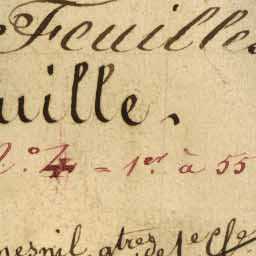 Feuilles
uille.
o. 4 = 1er. à 55
mesnil atres 1e cle
de